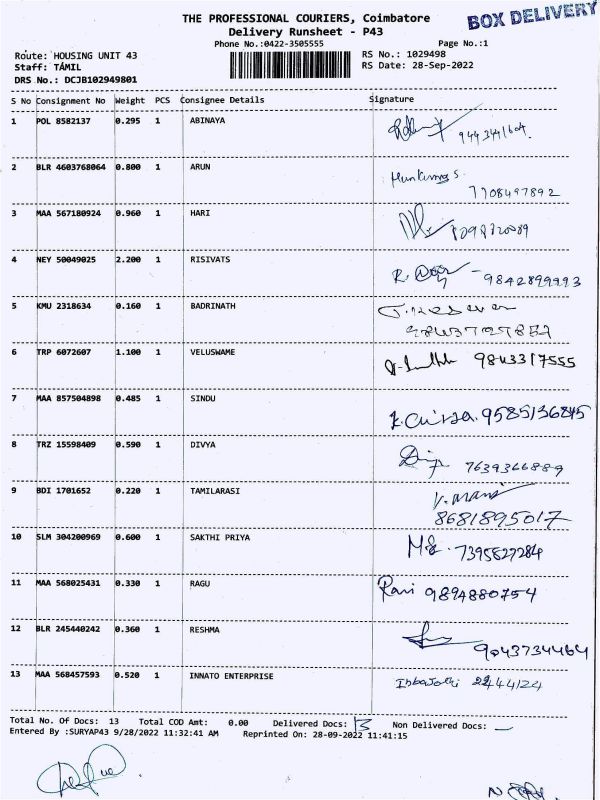 THE PROFESSIONAL COURIERS, Coimbatore
BOX DELIVERY
Delivery Runsheet - P43
Phone No.:0422-3505555
Page No.:1
Route: HOUSING UNIT 43
RS No.: 1029498
Staff: TÁMIL
RS Date: 28-Sep-2022
DRS No.: DCJB102949801
S No Consignment No Weight PCS Consignee Details Signature
1 POL 8582137 0.295 1 ABINAYA
2 BLR 4603768064 0.800 1 ARUN
7708497892
3 MAA 567180924 0.960 1 HARI
4 NEY 50049025 2.200 1 RISIVATS
5 KMU 2318634 0.160 1 BADRINATH
6 TRP 6072607 1.100 1 VELUSWAME 9843317555
7 MAA 857504898 0.485 1 SINDU
9585136845
8 TRZ 15598409 0.590 1 DIVYA
7639366889
9 BDI 1701652 0.220 1 TAMILARASI
8681895017
10 SLM 304200969 0.600 1 SAKTHI PRIYA
7395827284
11 MAA 568025431 0.330 1 RAGU
Ravi 9894880754
12 BLR 245440242 0.360 1 RESHMA
9043734464
13 MAA 568457593 0.520 1 INNATO ENTERPRISE
Total No. Of Docs: 13 Total COD Amt: 0.00 Delivered Docs: 13 Non Delivered Docs: —
Entered By :SURYAP43 9/28/2022 11:32:41 AM Reprinted On: 28-09-2022 11:41:15